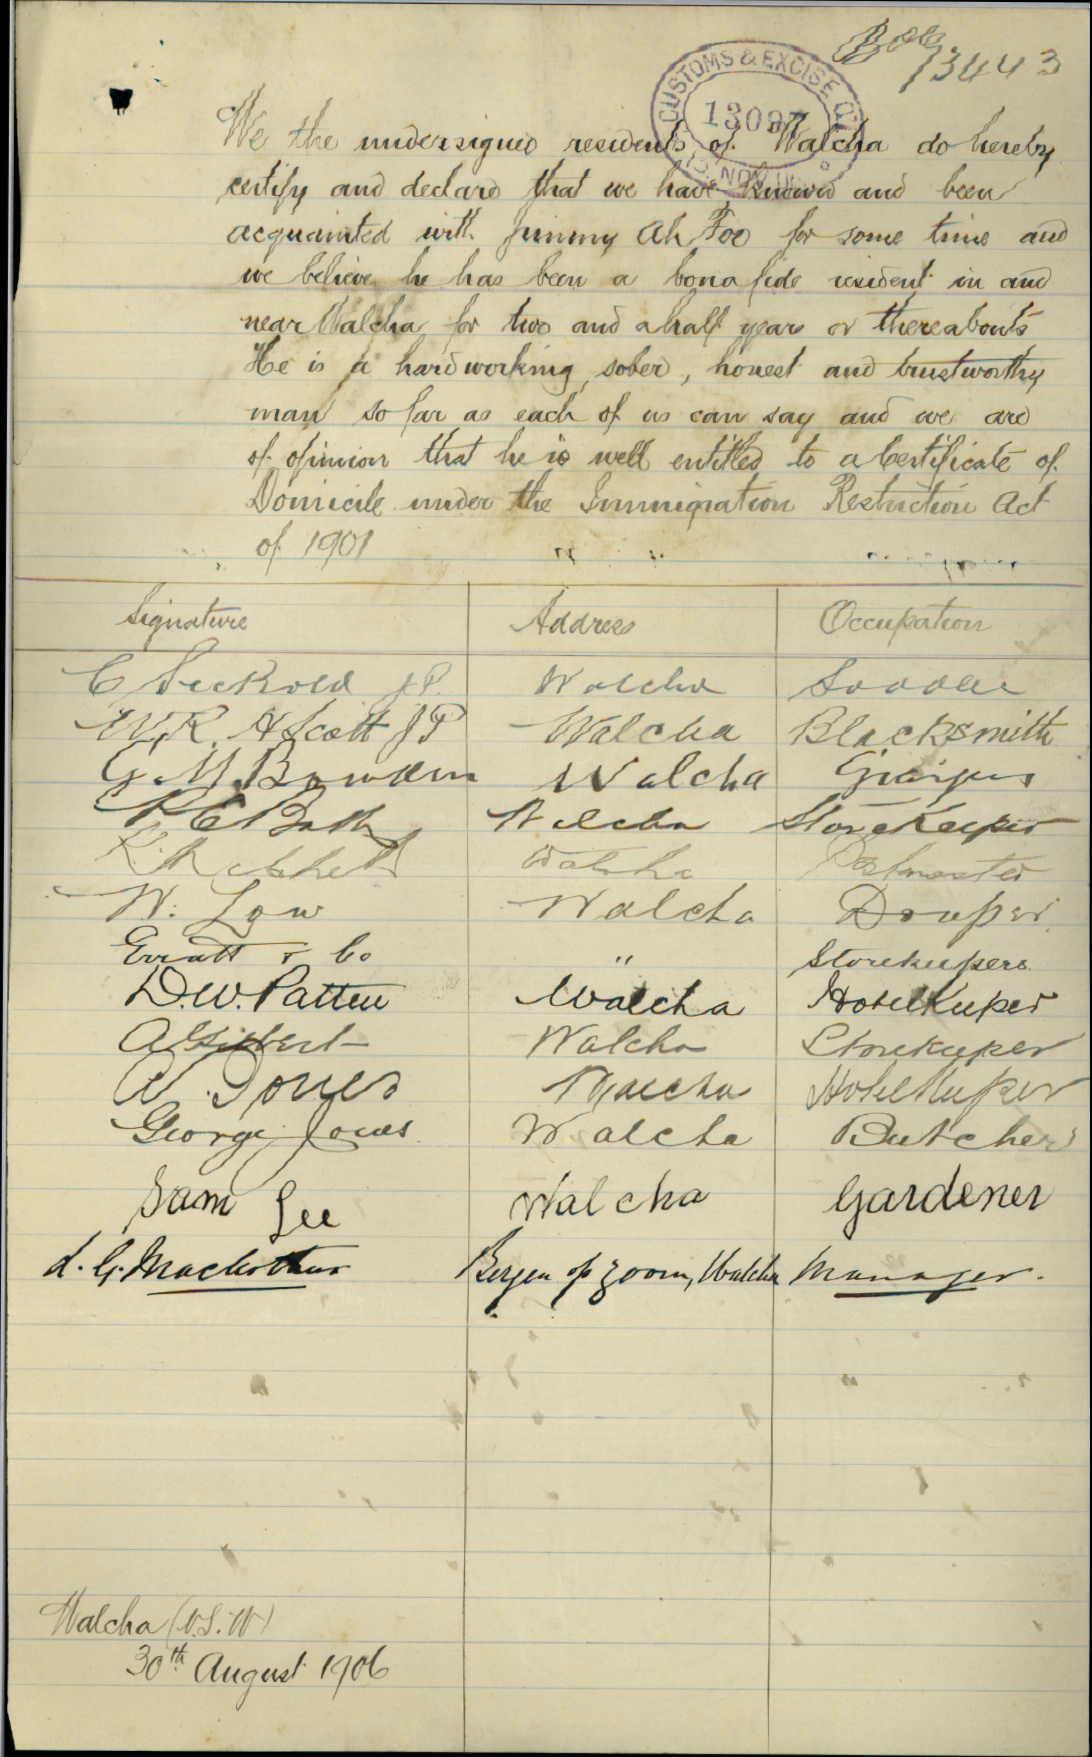 13443
CUSTOMS & EXCISE
1309
NOV
We the undersigned residents of Walcha do hereby
certify and declare that we have known and been
acquainted with Jimmy Ah Foo for some time and
we believe he has been a bona fide resident in and
near Walcha for two and a half years or thereabouts
He is a hardworking, sober, honest and trustworthy
man so far as each of us can say and we are
of opinion that he is well entitled to a Certificate of
Domicile under the Immigration Restriction Act
of 1901
Signature Address Occupation
C J.P. Walcha
Scott JP Walcha Blacksmith
G. M. Walcha
Walcha Storekeeper
Walcha Postmaster
W. Low Walcha Draper
Erratt & Co " Storekeepers
D.W. Patten Walcha Hotelkeeper
A Gilbert Walcha Storekeeper
Jones Walcha Hotelkeeper
George Jones Walcha Butcher
Sam Lee Walcha Gardener
G. MacArthur Bergen op Zoom, Walcha Manager.
Walcha (N.S.W)
30th August 1906